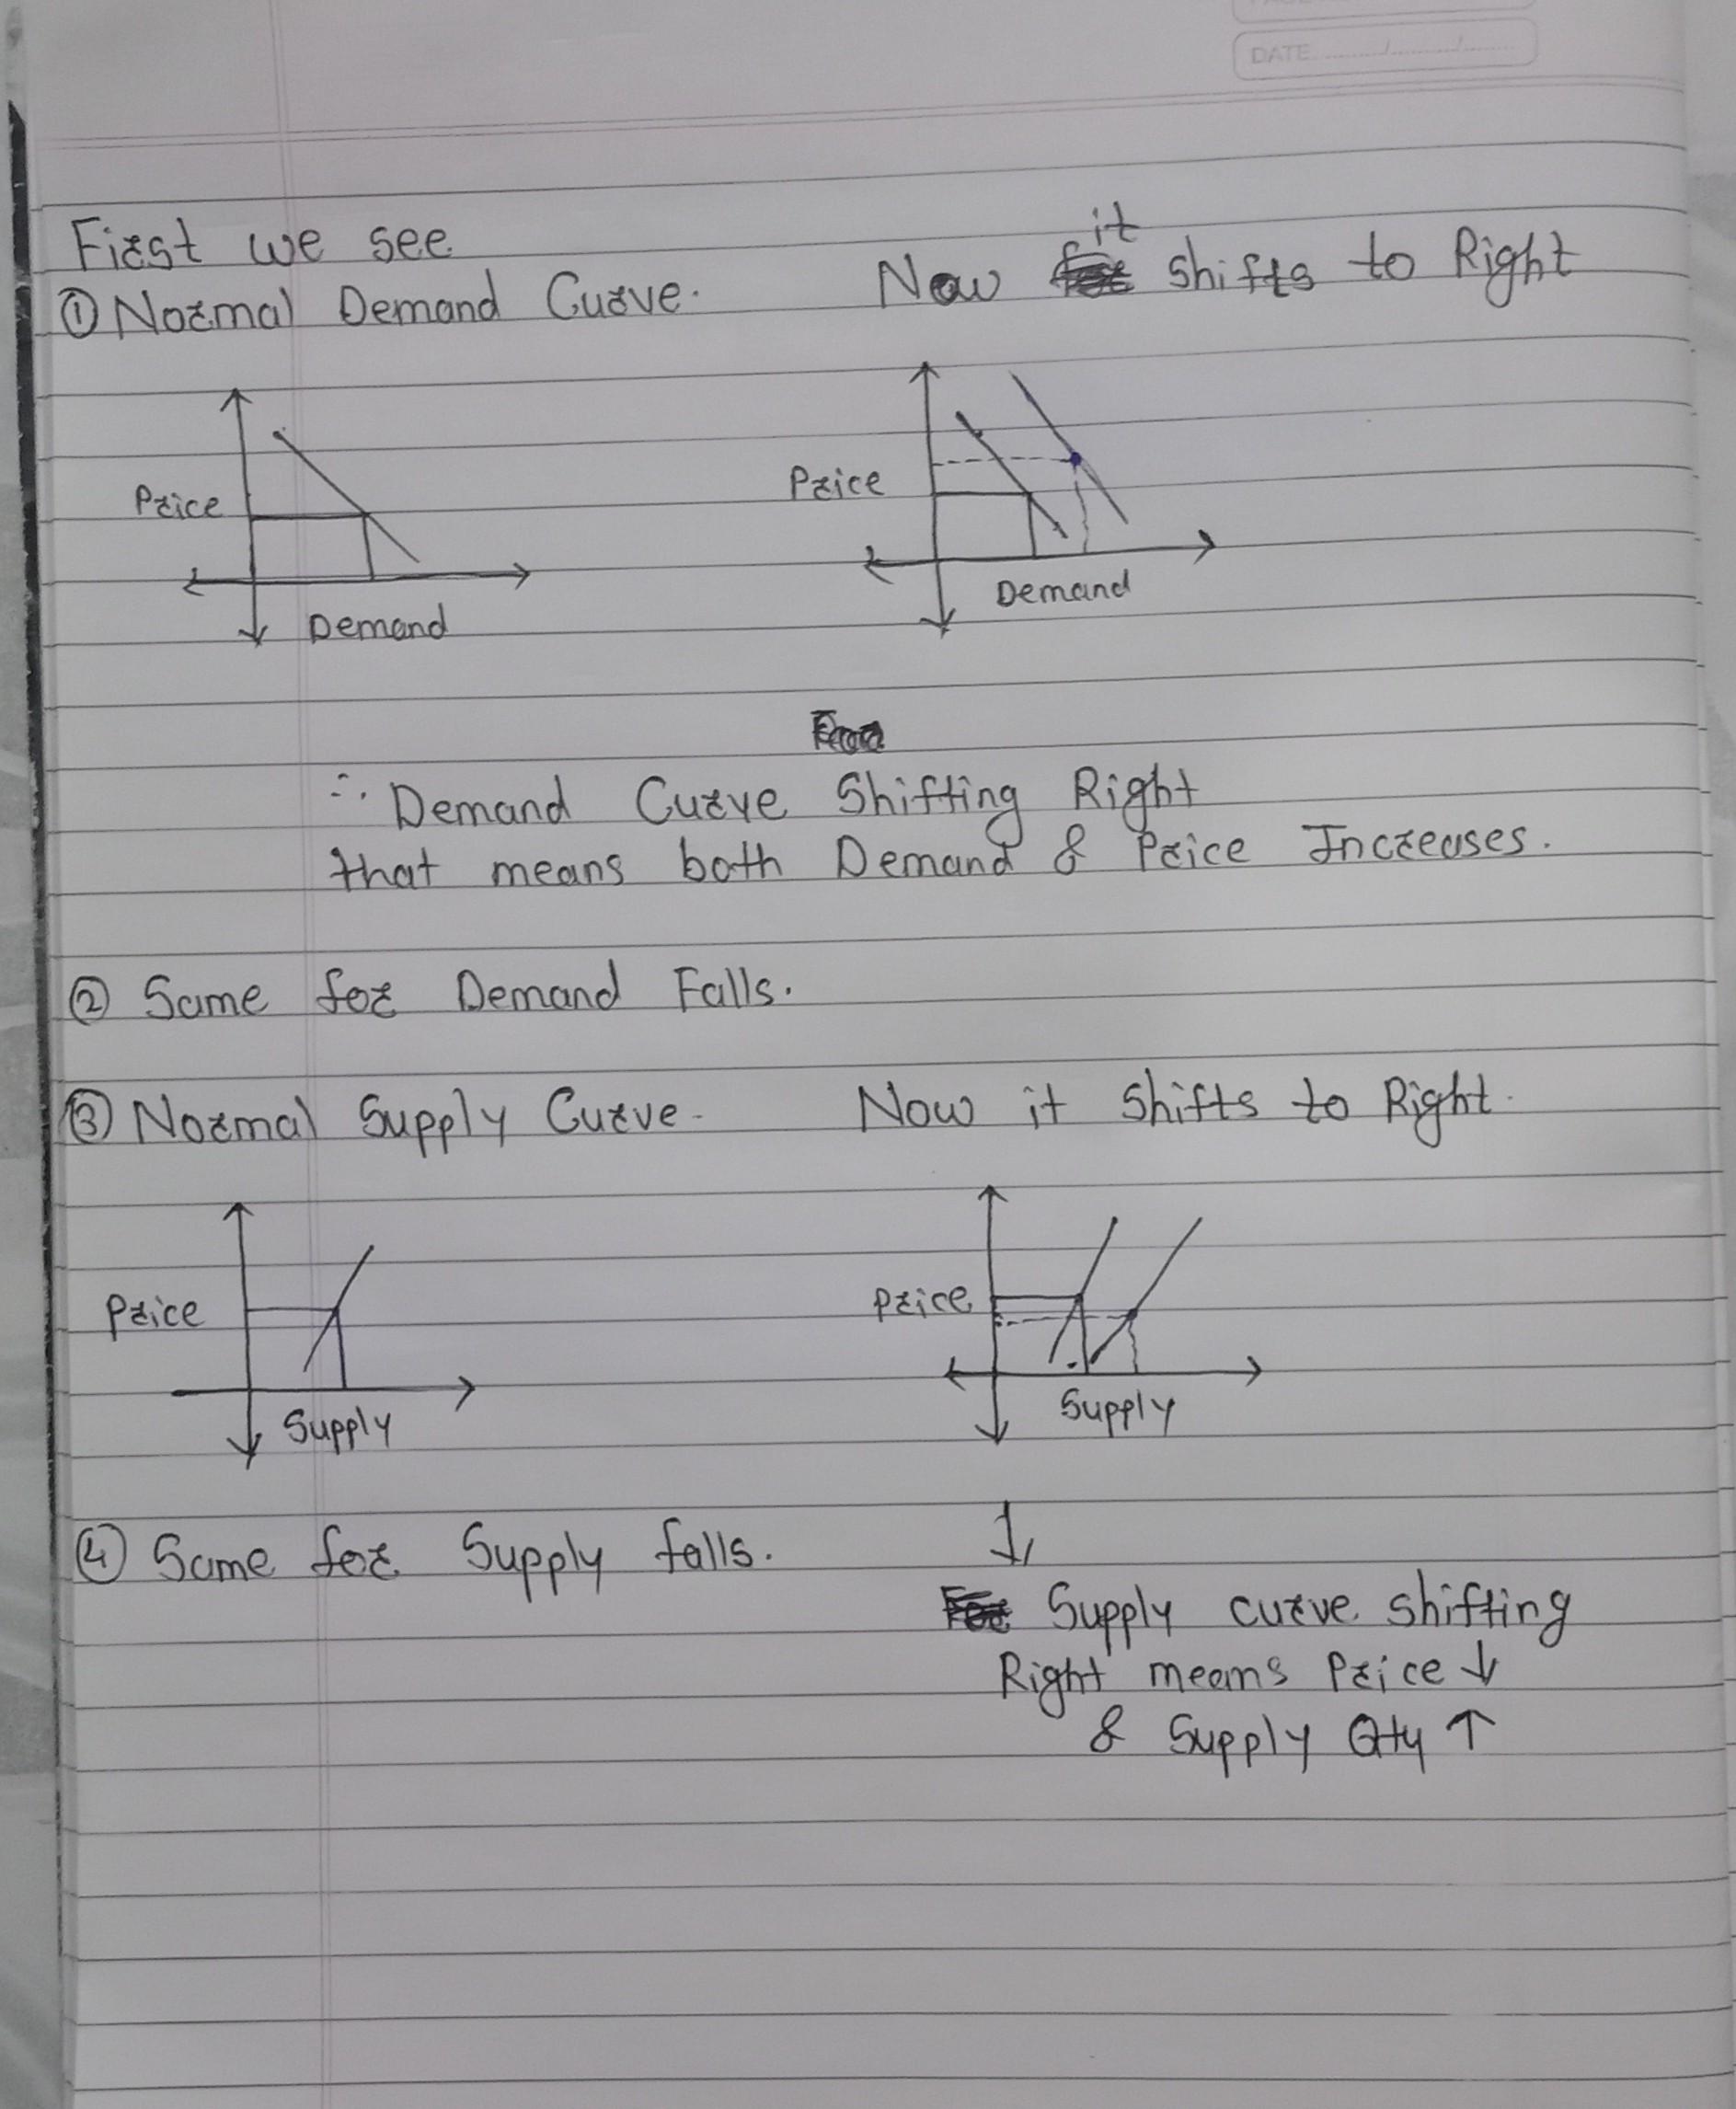 DATE
First we see
① Normal Demand Curve.
Now it shifts to Right
Price
Demand
Price
Demand
∴ Demand Curve Shifting Right
that means both Demand & Price Increases.
② Same for Demand Falls.
③ Normal Supply Curve.
Now it shifts to Right.
Price
Supply
Price
Supply
④ Same for Supply falls.
↓
Supply curve shifting
Right means Price ↓
& Supply Qty ↑